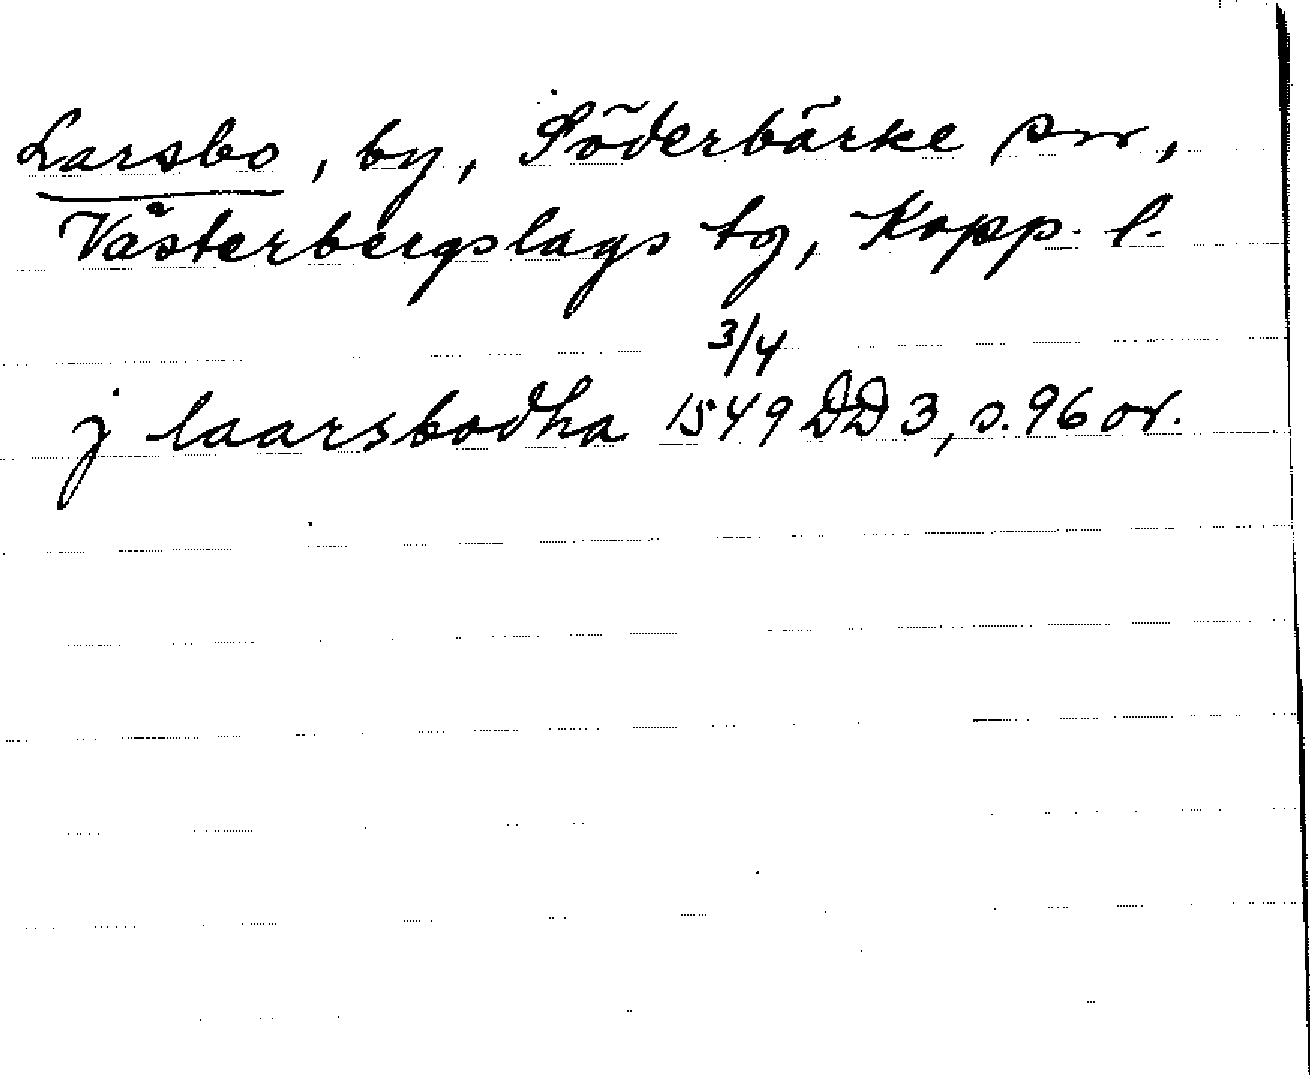 Larsbo, by, Söderbärke sn,
Västerbergslags tg, Kopp. l.
3/4
j laarsbodha 1549 DD 3, s. 96 or.